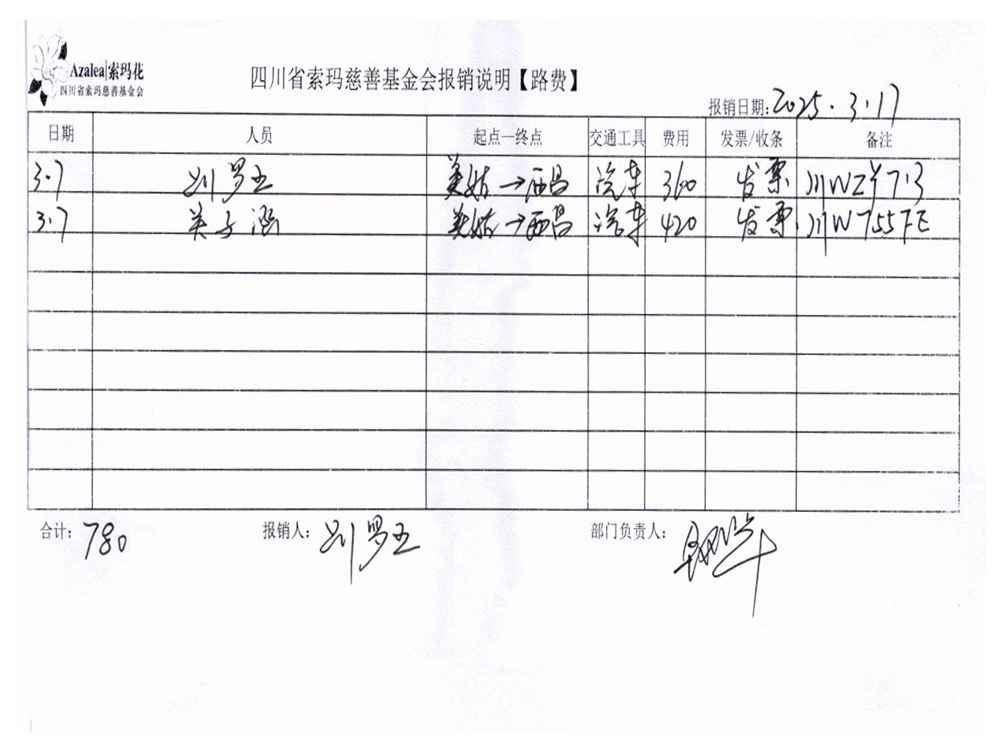 Azalea|索玛花
四川省索玛慈善基金会
四川省索玛慈善基金会报销说明【路费】
报销日期:2025.3.17
日期 人员 起点—终点 交通工具 费用 发票/收条 备注
3.7 美姑→西昌 汽车 360 发票
3.7 美姑→西昌 汽车 420 发票 川W755FE
合计: 780 报销人: 部门负责人: